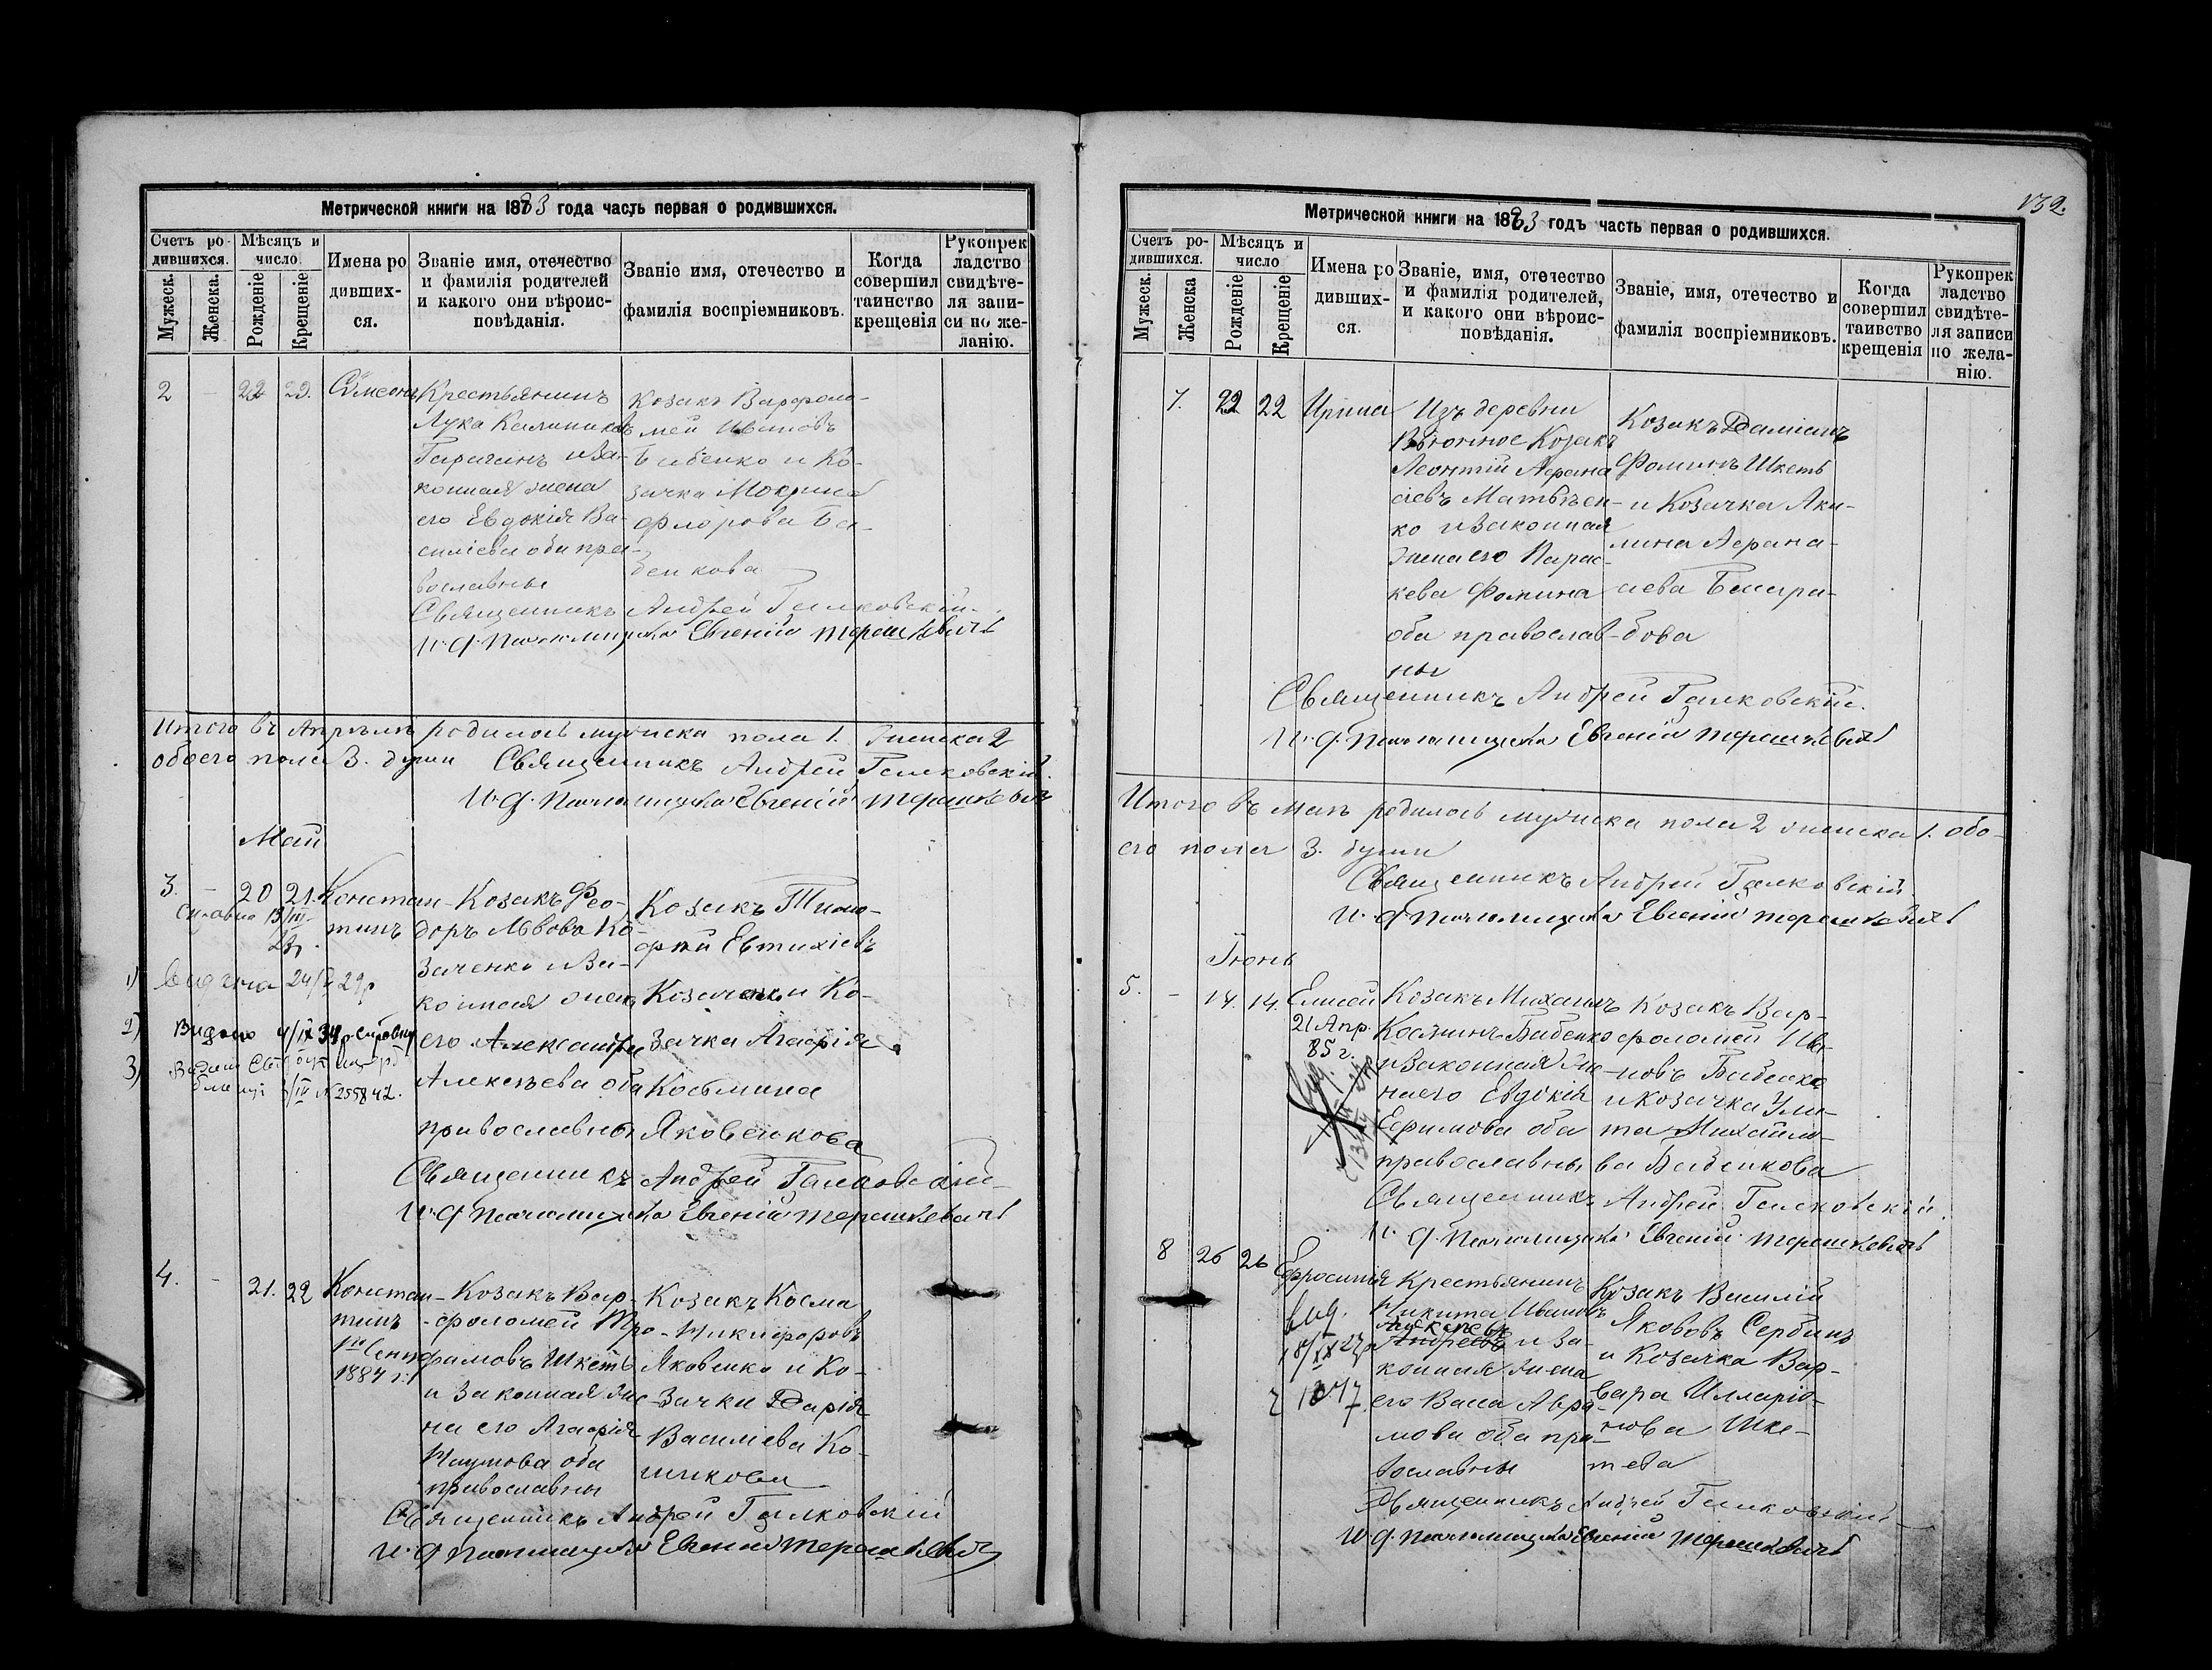 Метрической книги на 1883 года часть первая о родившихся.
Счетъ ро-дившихся.
Мѣсяцъ и число
Имена ро дивших-ся.
Званіе имя, отечество и фамилія родителей и какого они вѣроис-повѣданія.
Званіе имя, отечество и фамилія воспріемниковъ.
Когда совершил таинство крещенія
Рукопрек ладство свидѣте-ля запи-си по же-ланію.
Мужеск.
Женска.
Рожденіе
Крещеніе
2 - 22 23. Сѵмеонъ
Крестьянинъ
Лука Калиников
Гарагинъ и За-
конная жена
его Евдокія Ва-
силіева оба пра-
вославные
Козакъ Варфоло-
мей Ивановъ
Бабенко и Ко-
зачка Мокрина
Флорова Ба-
бенкова
Священникъ Андрей Галковскій.
И. д. Псаломщика Евгеній Терешкевичъ
Итого въ Апрѣлѣ родилось мужска пола 1. женска 2
обоего пола 3. души Священникъ Андрей Галковскій.
И. д. Псаломщика Евгеній Терешкевичъ
Май
3. - 20 21. Констан-
тинъ
Козакъ Фео-
доръ Львовъ Ко-
заченко и За-
конная жена
его Александра
Алексѣева оба
православны
Козакъ Тимо-
фей Евтихіевъ
Козаченко и Ко-
зачка Агафія
Косьмина
Яковенкова
1) Видана 24/ 29р
2) Видано 4/IX 34р.
3)
№ 255842.
Священникъ Андрей Галковскій
И. д. Псаломщика Евгеній Терешкевичъ
4. - 21. 22 Констан-
тинъ
1го Сент
1884 г.
Козакъ Вар-
фоломей Тро-
фимовъ Шкеть
и Законная же-
на его Агафія
Наумова оба
православны
Козакъ Косма
Никифоровъ
Яковенко и Ко-
зачка Дарія
Василіева Ко-
шикова
Священникъ Андрей Галковскій
И. д. Псаломщика Евгеній Терешкевичъ
132.
Метрической книги на 1883 годъ часть первая о родившихся.
Счетъ ро-дившихся.
Мѣсяцъ и число
Имена ро дивших-ся.
Званіе, имя, отечество и фамилія родителей, и какого они вѣроис-повѣданія.
Званіе, имя, отечество и фамилія воспріемниковъ.
Когда совершил таивство крещенія
Рукопрек ладство свидѣте-ля записи по жела-нію.
Мужеск.
Женска
Рожденіе
Крещеніе
7. 22 22 Ирина
Изъ деревни
Вьюнное Козакъ
Леонтій Афана
сіевъ Матвѣен-
ко и Законная
жена его Парас-
кева Фомина
оба православ-
ны
Козакъ Даміанъ
Фоминъ Шкеть
и Козачка Аки-
лина Афана-
сіева
бова
Священникъ Андрей Галковскій.
И. д. Псаломщика Евгеній Терешкевичъ
Итого въ Маѣ родилось мужска пола 2 женска 1. обо-
его пола 3. души
Священникъ Андрей Галковскій.
И. д. Псаломщика Евгеній Терешкевичъ
Іюнь
5. - 14. 14. Елисей
21 Апр.
85 г.
Козакъ Михаилъ
Косминъ Бабенко
и Законная же-
на его Евдокія
Ефимова оба
православны
Козакъ Вар-
фоломей Ива-
новъ Бабенко
и козачка Ули-
та Михайло-
ва Бабенкова
Священникъ Андрей Галковскій.
И. д. Псаломщика Евгеній Терешкевичъ
8 26 26 Ефросинія
Вид.
18/IX 27р
Крестьянинъ
Никита Ивановъ
Алексѣевъ
Андреевъ и За-
конная жена
его Васса Авра-
мова оба пра-
вославны
Козакъ Василій
Яковъ Сербинъ
и Козачка Вар-
вара Илларіо-
нова Шке-
тева
Священникъ Андрей Галковскій
И. д. Псаломщика Евгеній Терешкевичъ